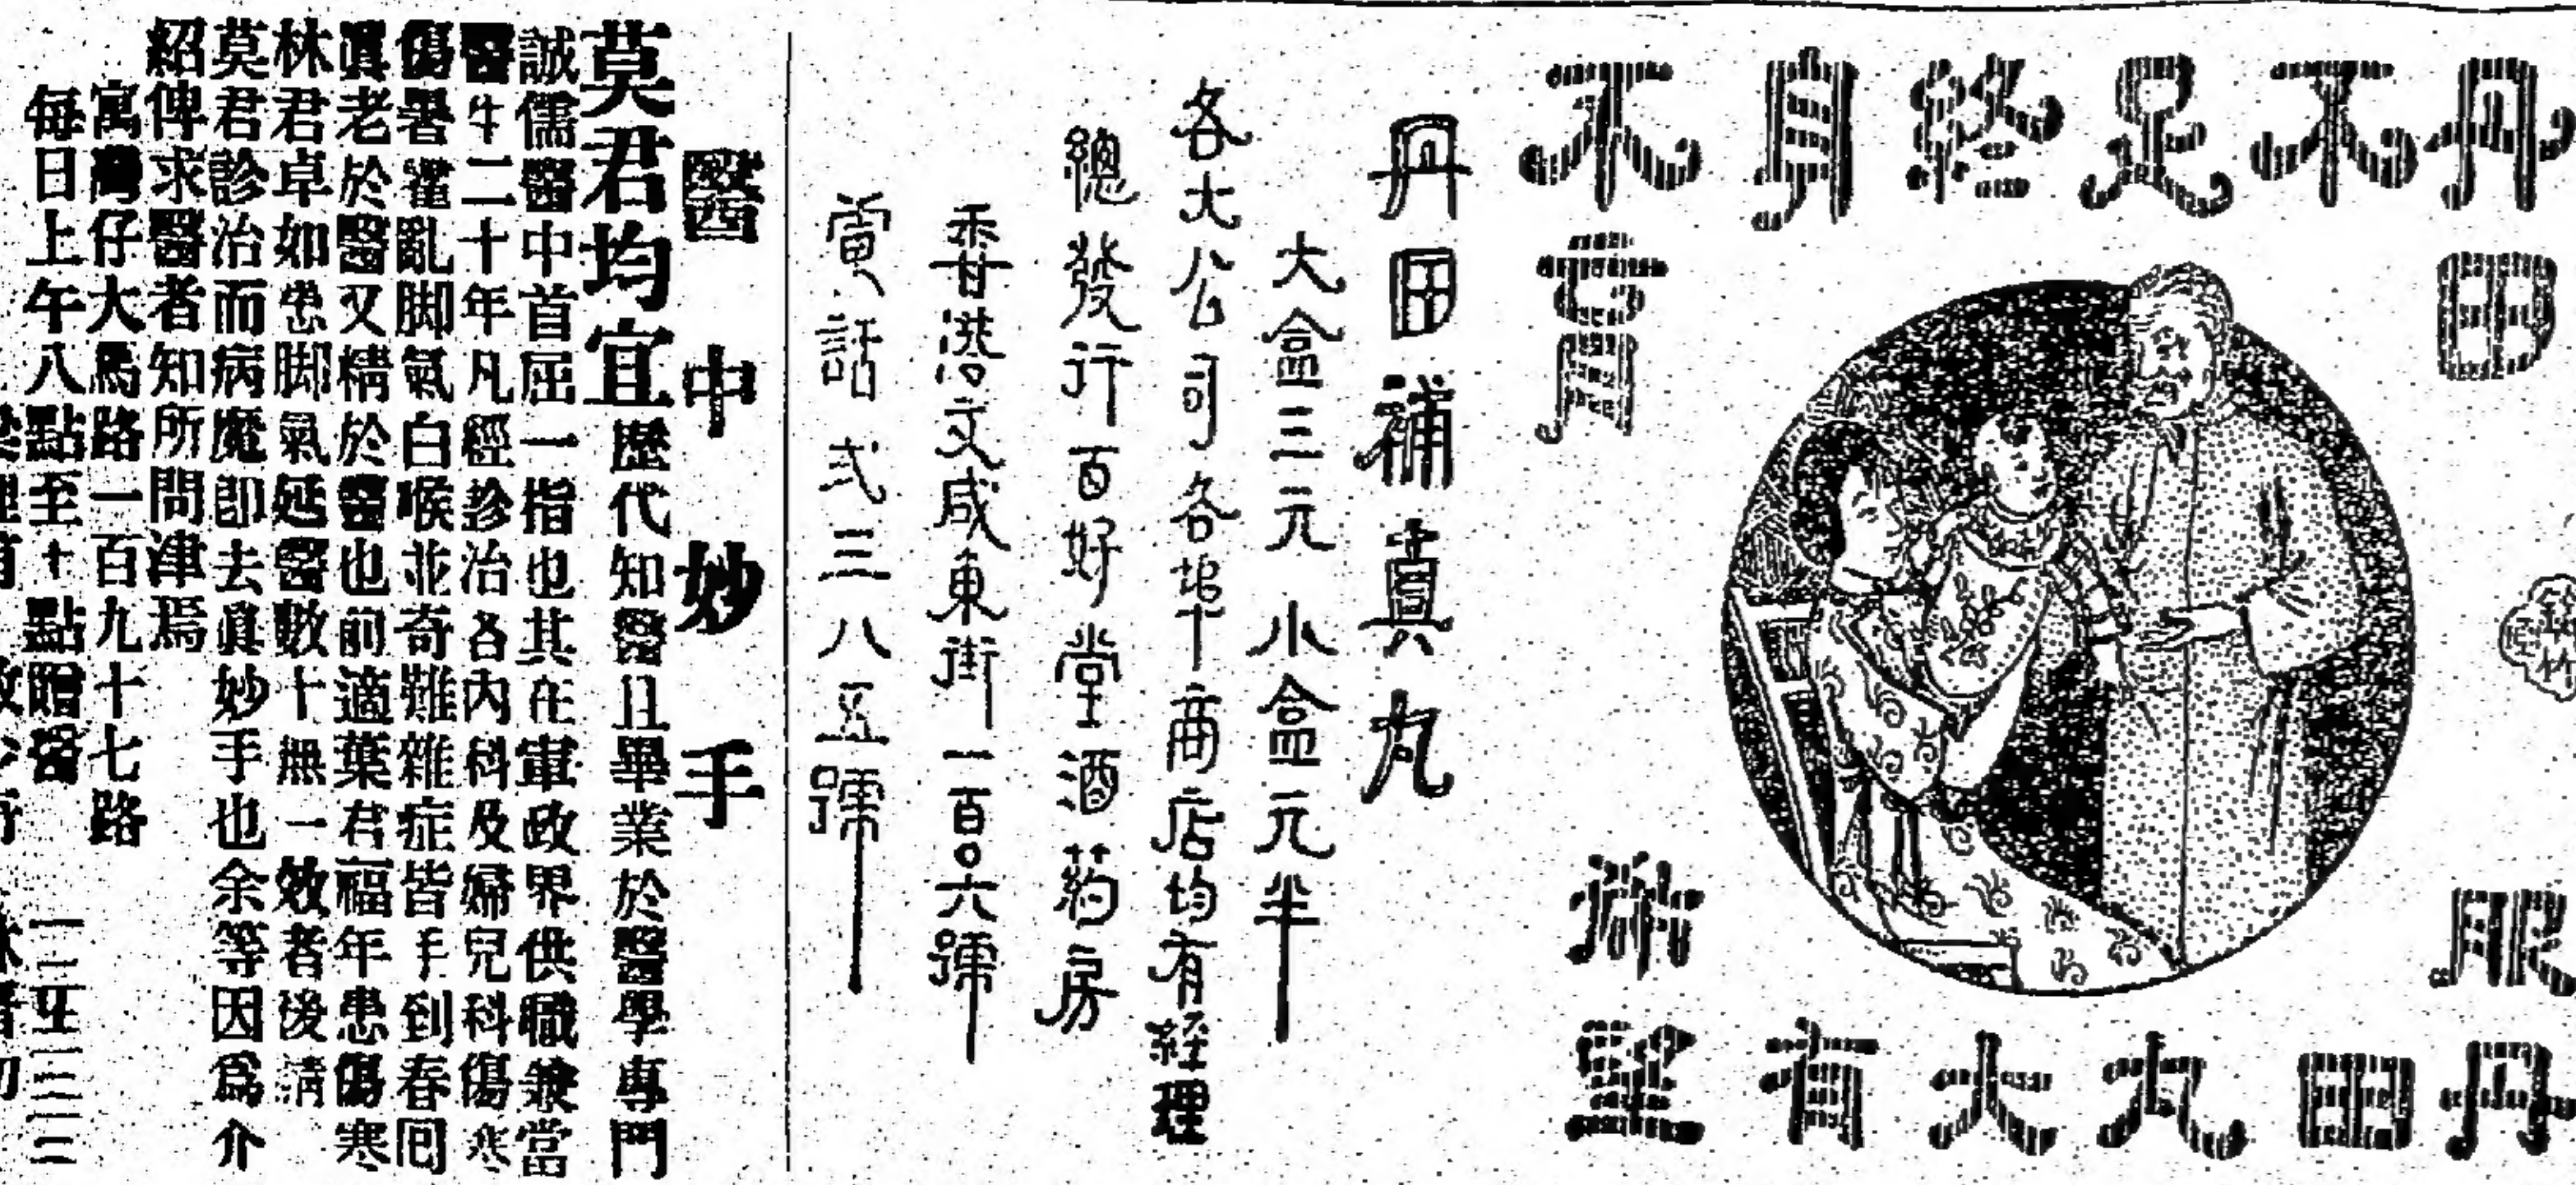 丹田不足終身不育
服丹田丸大有望
丹田補真丸
大盒三元 小盒元半
各大公司各埠商店均有經理
總發行百好堂酒葯房
香港文咸東街一百0六號
電話弍三八五號
醫中妙手
莫君均宜歷代知醫且畢業於醫學專門
誠儒醫中首屈一指也其在軍政界供職兼當
醫生二十年凡經診治各內科及婦兒科傷寒
傷暑霍亂脚氣白喉並奇難雜症皆手到春回
眞老於醫又精於醫也前適葉君福年患傷寒
林君卓如患脚氣延醫數十無一效者後請
莫君診治而病魔即去眞妙手也余等因爲介
紹俾求醫者知所問津焉
寓灣仔大馬路一百九十七路
每日上午八點至十點贈醫